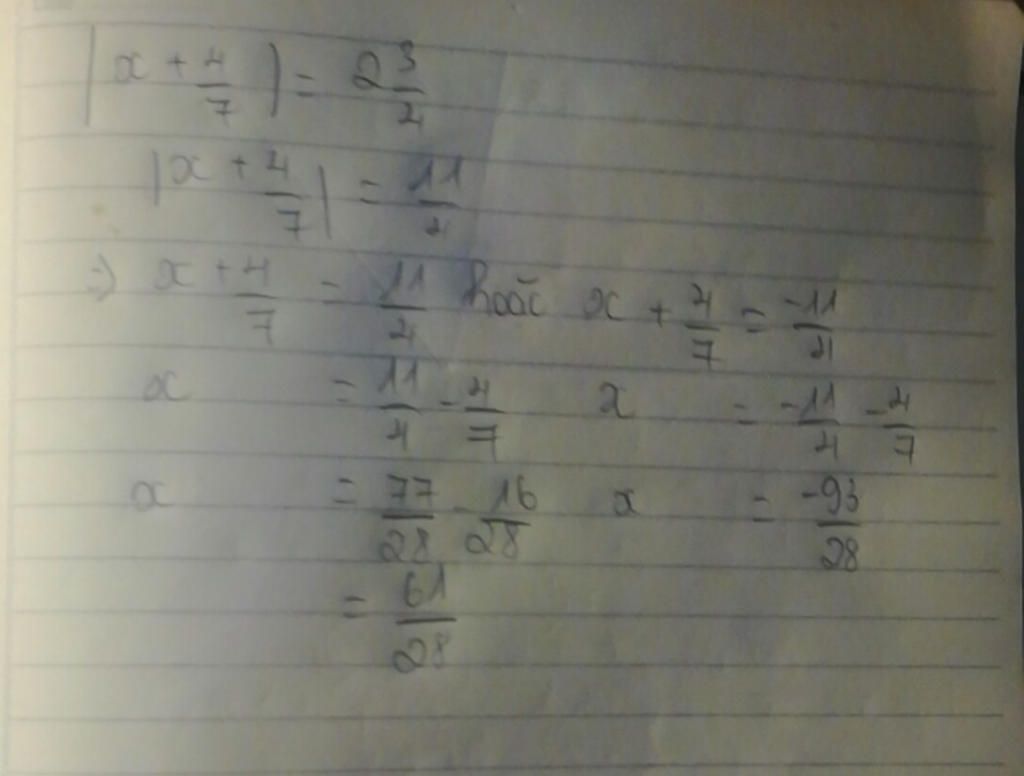 |x + 4/7| = 2 3/4
|x + 4/7| = 11/4
=) x + 4/7 = 11/4 hoặc x + 4/7 = -11/4
x = 11/4 - 4/7 x = -11/4 - 4/7
x = 77/28 - 16/28 x = -93/28
= 61/28